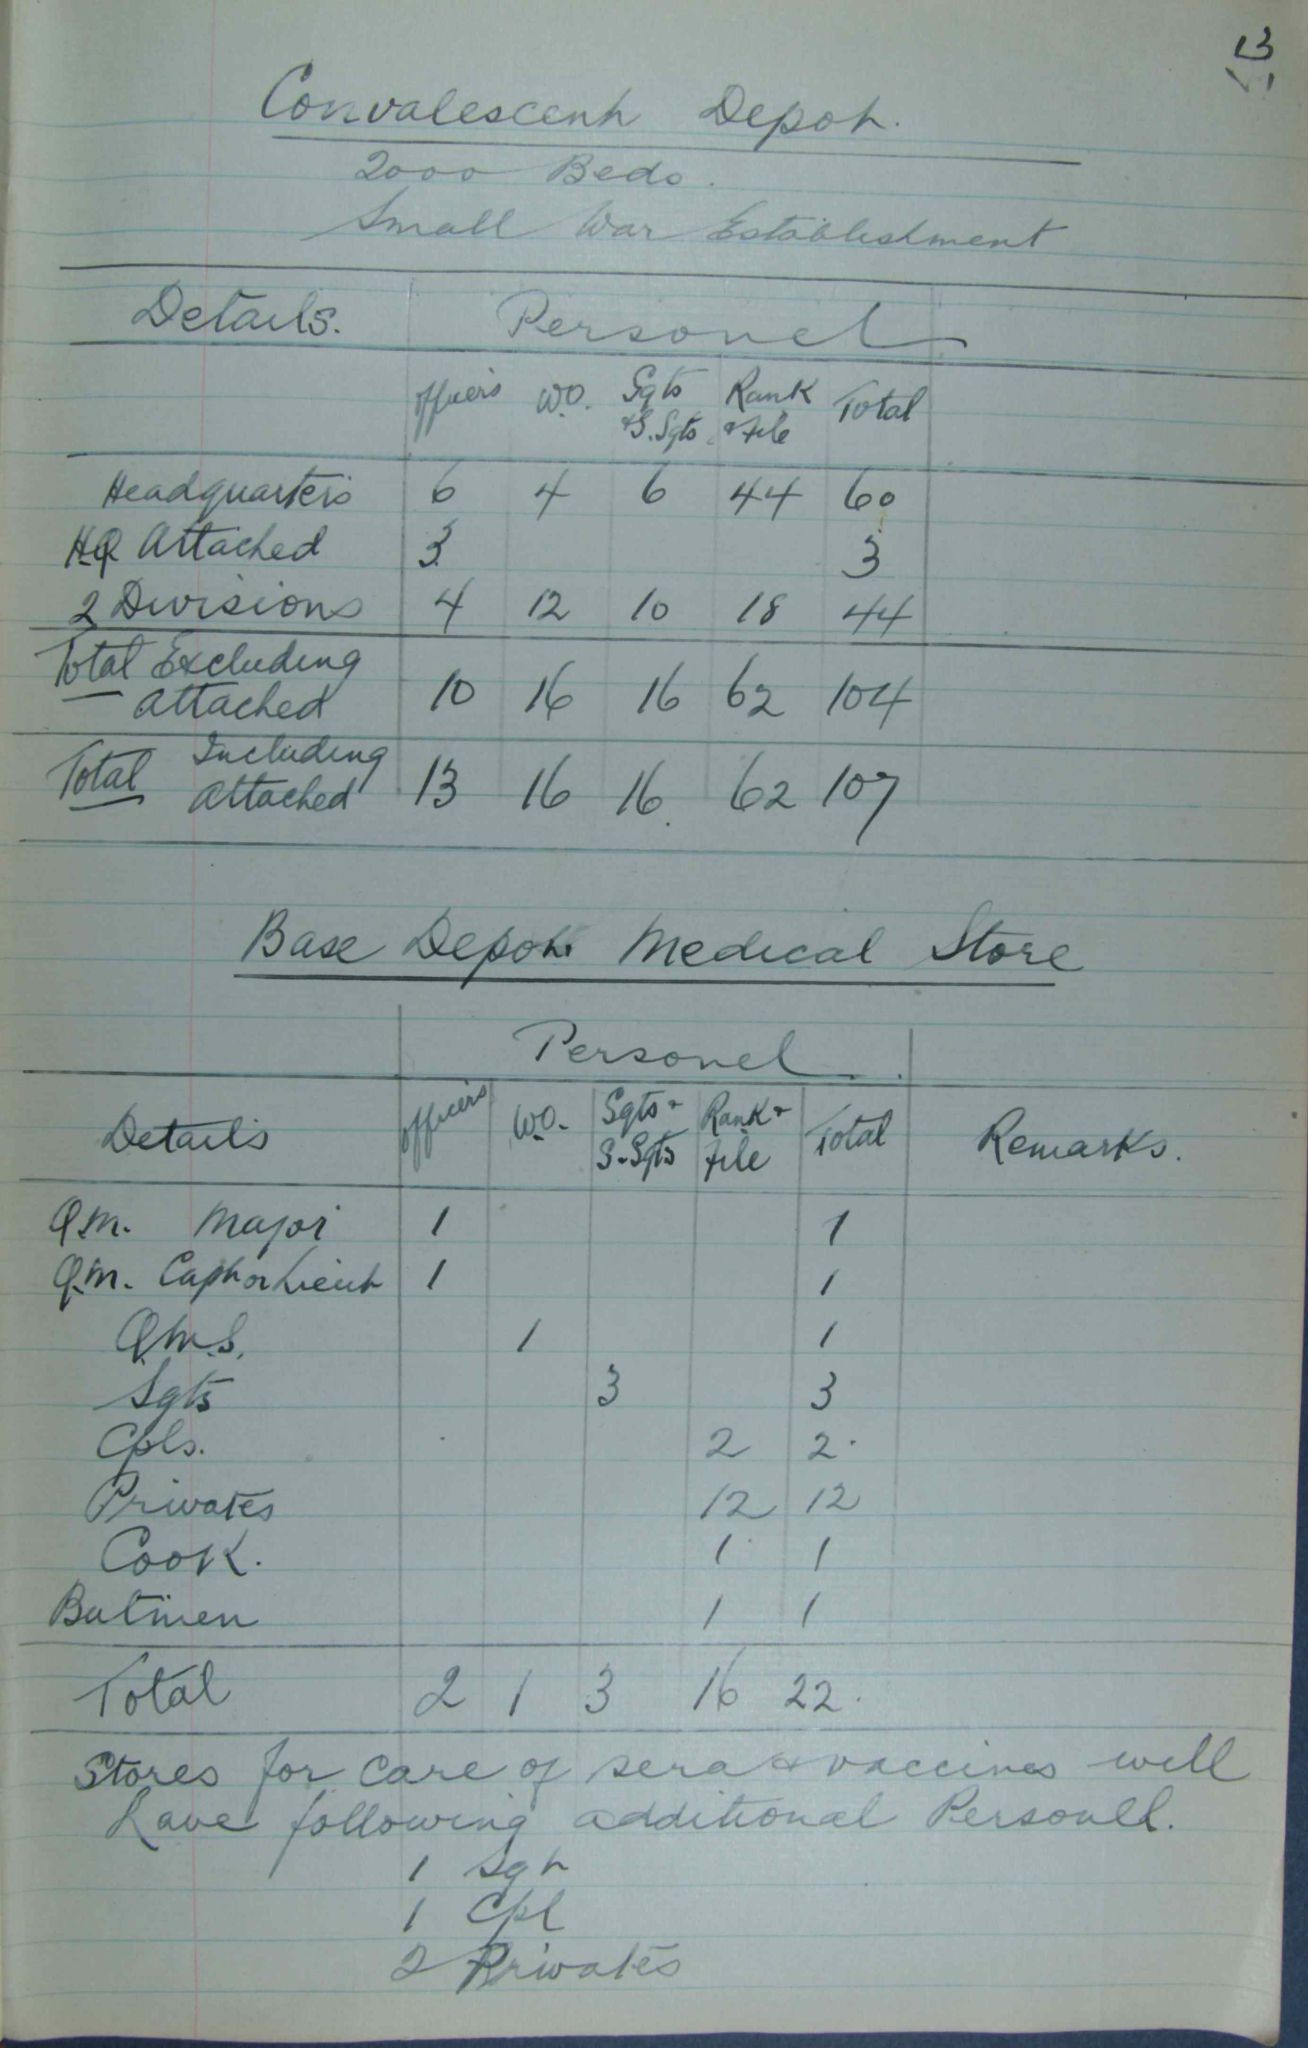 13
Convalescent Depot.
2000 Beds.
Small War Establishment
Details. Personel
Officers W.O. Sgts & S.Sgts Rank & File Total
Headquarters 6 4 6 44 60
HQ Attached 3 3
2 Divisions 4 12 10 18 44
Total Excluding
Attached 10 16 16 62 104
Total Including
Attached 13 16 16. 62 107
Base Depot Medical Store
Personel
Details Officers W.O. Sgts & S.Sgts Rank & File Total Remarks.
Q.M. Major 1 1
Q.M. Capt or Lieut 1 1
Q.M.S. 1 1
Sgts 3 3
Cpls. 2 2.
Privates 12 12
Cook. 1 1
Batmen 1 1
Total 2 1 3 16 22.
Stores for care of sera & vaccines will
have following additional Personel.
1 Sgt
1 Cpl
2 Privates